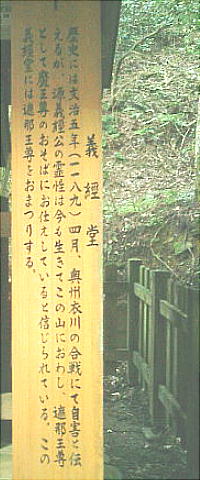 義經堂
歴史には文治五年(一一八九)四月、奥州衣川の合戦にて自害と伝
えるが、源義經公の霊性は今も生きてこの山におわし、遮那王尊
として魔王尊のおそばにお仕えしていると信じられている。この
義經堂には遮那王尊をおまつりする。